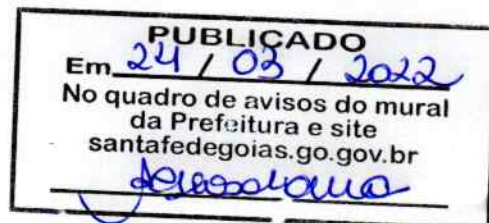 PUBLICADO
Em 24 / 03 / 2022
No quadro de avisos do mural
da Prefeitura e site
santafedegoias.go.gov.br